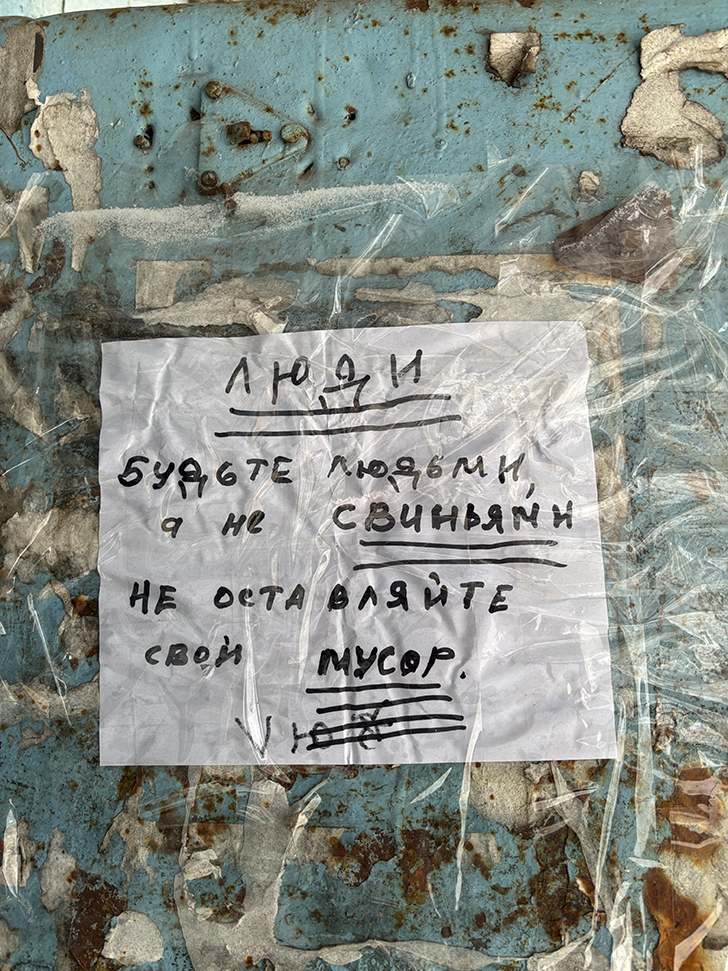 ЛЮДИ
БУДЬТЕ ЛЮДЬМИ,
а не СВИНЬЯМИ
НЕ ОСТАВЛЯЙТЕ
СВОЙ МУСОР.